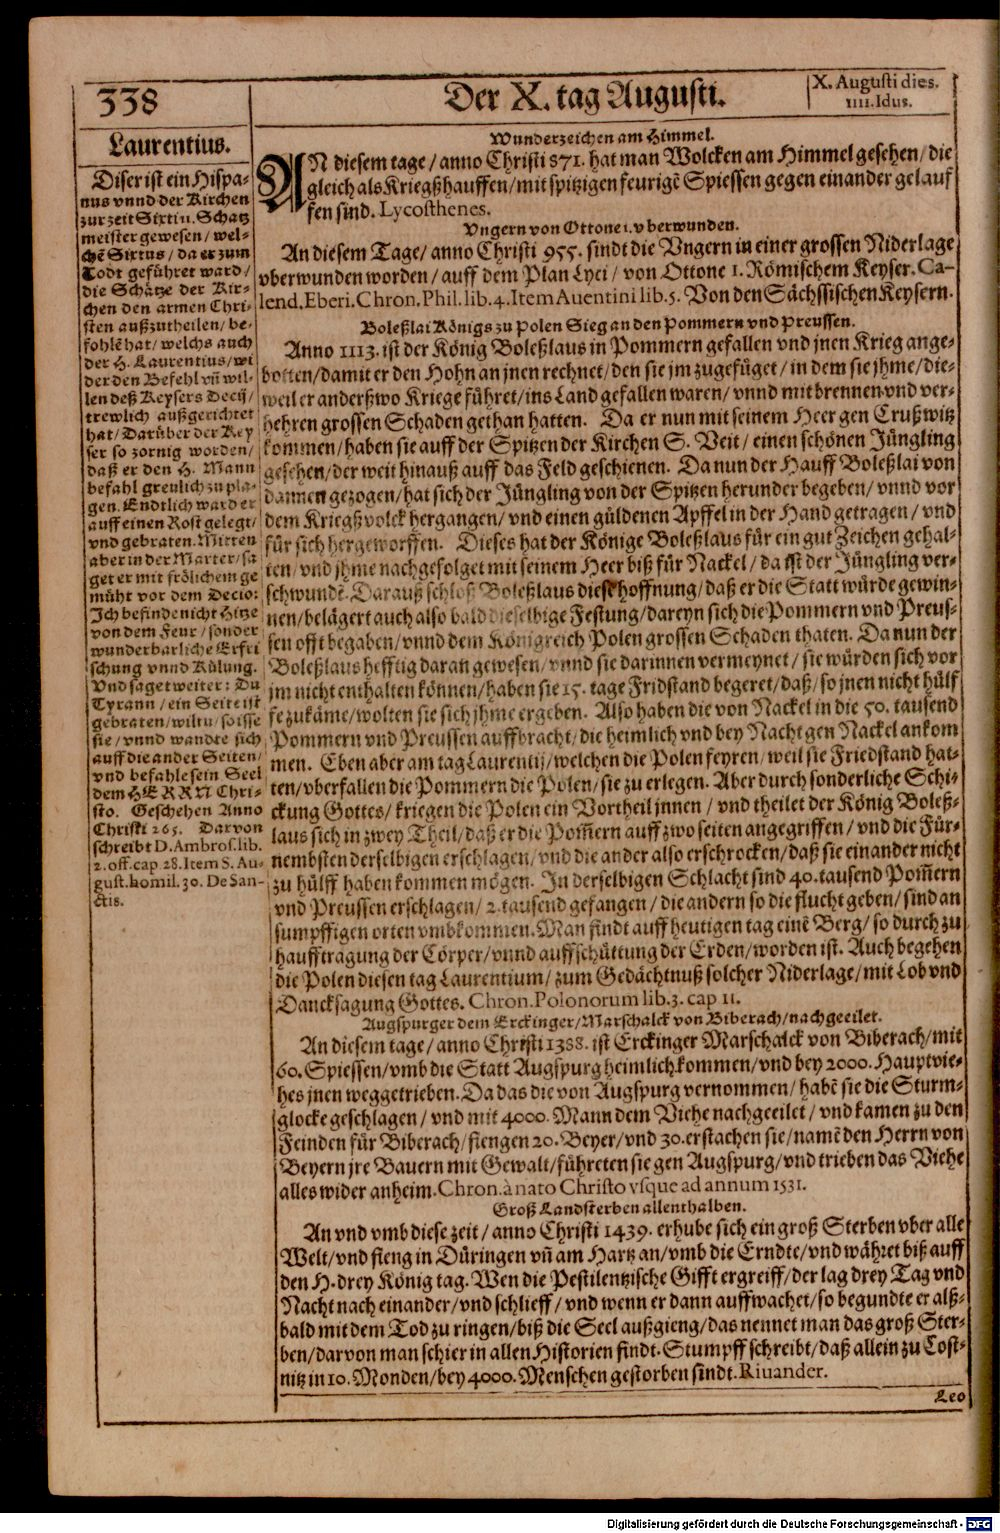 338
Der X. tag Augusti.
X. Augusti dies.
IIII. Idus.
Laurentius.
Diser ist ein Hispa-
nus vnnd der Kirchen
zur zeit Sixti II. Schatz
meister gewesen / wel-
chē Sixtus / da er zum
Todt geführet ward /
die Schätze der Kir-
chen den armen Chri-
sten außzutheilen / be-
fohlē hat / welchs auch
der H. Laurentius / wi
der den Befehl vñ wil-
len deß Keysers Decij /
trewlich außgerichtet
hat / Darüber der Key
ser so zornig worden /
daß er den H. Mann
befahl grewlich zu pla-
gen. Endtlich ward er
auff einen Rost gelegt /
vnd gebraten. Mitten
aber in der Marter / sa
get er mit frölichem ge
müht vor dem Decio:
Ich befinde nicht Hitze
von dem Feur / sonder
wunderbarliche Erfri
schung vnnd Külung.
Vnd saget weiter: Du
Tyrann / ein Seite ist
gebraten / wiltu / so isse
sie / vnnd wandte sich
auff die ander Seiten /
vnd befahle sein Seel
dem HERRN Chri-
sto. Geschehen Anno
Christi 265. Darvon
schreibt D. Ambros. lib.
2. off. cap 28. Item S. Au-
gust. homil. 30. De San-
ctis.
Wunderzeichen am Himmel.
AN diesem tage / anno Christi 871. hat man Wolcken am Himmel gesehen / die
gleich als Kriegßhauffen / mit spitzigen feurigē Spiessen gegen einander gelauf
fen sind. Lycosthenes.
Vngern von Ottone I. vberwunden.
An diesem Tage / anno Christi 955. sindt die Vngern in einer grossen Niderlage
vberwunden worden / auff dem Plan Lyci / von Ottone I. Römischem Keyser. Ca-
lend. Eberi. Chron. Phil. lib. 4. Item Auentini lib. 5. Von den Sächssischen Keysern.
Boleßlai Königs zu Polen Sieg an den Pommern vnd Preussen.
Anno 1113. ist der König Boleßlaus in Pommern gefallen vnd jnen Krieg ange-
botten / damit er den Hohn an jnen rechnet / den sie jm zugefüget / in dem sie jhme / die-
weil er anderßwo Kriege führet / ins Land gefallen waren / vnnd mit brennen vnd ver-
hehren grossen Schaden gethan hatten. Da er nun mit seinem Heer gen Crußwitz
kommen / haben sie auff der Spitzen der Kirchen S. Veit / einen schönen Jüngling
gesehen / der weit hinauß auff das Feld geschienen. Da nun der Hauff Boleßlai von
dannen gezogen / hat sich der Jüngling von der Spitzen herunder begeben / vnnd vor
dem Kriegßvolck hergangen / vnd einen güldenen Apffel in der Hand getragen / vnd
für sich hergeworffen. Dieses hat der Könige Boleßlaus für ein gut Zeichen gehal-
ten / vnd jhme nachgefolget mit seinem Heer biß für Nackel / da ist der Jüngling ver-
schwundē. Darauß schloß Boleßlaus diese hoffnung / daß er die Statt würde gewin-
nen / belägert auch also bald dieselbige Festung / dareyn sich die Pommern vnd Preus-
sen offt begaben / vnnd dem Königreich Polen grossen Schaden thaten. Da nun der
Boleßlaus hefftig daran gewesen / vnnd sie darinnen vermeynet / sie würden sich vor
jm nicht enthalten können / haben sie 15. tage Fridstand begeret / daß / so jnen nicht hülf
fe zukäme / wolten sie sich jhme ergeben. Also haben die von Nackel in die 50. tausend
Pommern vnd Preussen auffbracht / die heimlich vnd bey Nacht gen Nackel ankom
men. Eben aber am tag Laurentij / welchen die Polen feyren / weil sie Friedstand hat-
ten / vberfallen die Pommern die Polen / sie zu erlegen. Aber durch sonderliche Schi-
ckung Gottes / kriegen die Polen ein Vortheil jnnen / vnd theilet der König Boleß-
laus sich in zwey Theil / daß er die Pom̄ern auff zwo seiten angegriffen / vnd die Für-
nembsten derselbigen erschlagen / vnd die ander also erschrocken / daß sie einander nicht
zu hülff haben kommen mögen. In derselbigen Schlacht sind 40. tausend Pom̄ern
vnd Preussen erschlagen / 2. tausend gefangen / die andern so die flucht geben / sind an
sumpffigen orten vmbkommen. Man findt auff heutigen tag einē Berg / so durch zu
haufftragung der Cörper / vnnd auffschüttung der Erden / worden ist. Auch begehen
die Polen diesen tag Laurentium / zum Gedächtnuß solcher Niderlage / mit Lob vnd
Dancksagung Gottes. Chron. Polonorum lib. 3. cap 11.
Augspurger dem Erckinger / Marschalck von Biberach / nachgeeilet.
An diesem tage / anno Christi 1388. ist Erckinger Marschalck von Biberach / mit
60. Spiessen / vmb die Statt Augspurg heimlich kommen / vnd bey 2000. Hauptvie-
hes jnen weggetrieben. Da das die von Augspurg vernommen / habē sie die Sturm-
glocke geschlagen / vnd mit 4000. Mann dem Viehe nachgeeilet / vnd kamen zu den
Feinden für Biberach / fiengen 20. Beyer / vnd 30. erstachen sie / namē den Herrn von
Beyern jre Bauern mit Gewalt / führeten sie gen Augspurg / vnd trieben das Viehe
alles wider anheim. Chron. à nato Christo vsque ad annum 1531.
Groß Landsterben allenthalben.
An vnd vmb diese zeit / anno Christi 1439. erhube sich ein groß Sterben vber alle
Welt / vnd fieng in Düringen vñ am Hartz an / vmb die Erndte / vnd währet biß auff
den H. drey König tag. Wen die Pestilentzische Gifft ergreiff / der lag drey Tag vnd
Nacht nach einander / vnd schlieff / vnd wenn er dann auffwachet / so begundte er alß-
bald mit dem Tod zu ringen / biß die Seel außgieng / das nennet man das groß Ster-
ben / darvon man schier in allen Historien findt. Stumpff schreibt / daß allein zu Cost-
nitz in 10. Monden / bey 4000. Menschen gestorben sindt. Riuander.
Leo
Digitalisierung gefördert durch die Deutsche Forschungsgemeinschaft - DFG